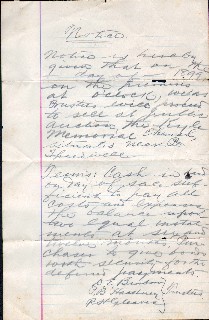 Notice
Notice is hereby
given that on
day of 1899
on the premises
at o'clock, we as
Trustees will proceed
to sell at public
auction the
Memorial Church
situated near
Terms: Cash in hand
on day of sale, sufficient
to pay all
Costs and expenses
the balance upon
two equal install
ments at six and
twelve months. Pur
chaser to give bond
with security for the
deferred payments.
Trustees